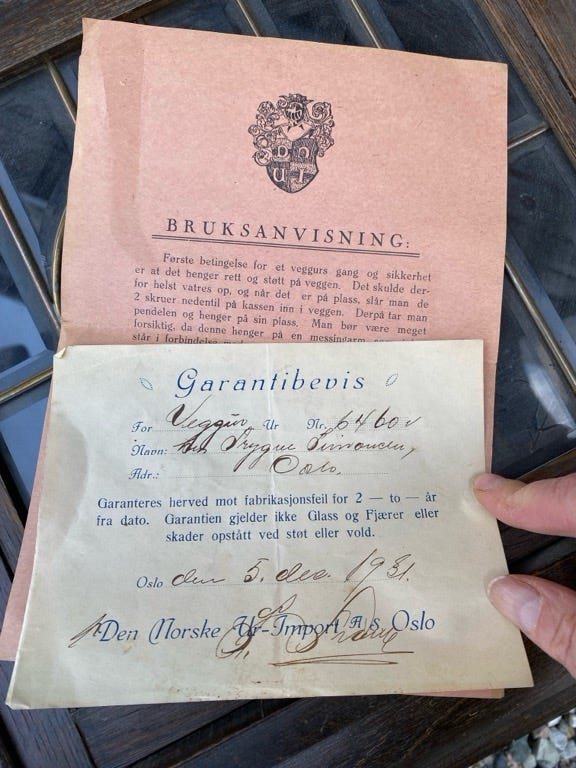 D N
U I
BRUKSANVISNING:
Første betingelse for et veggurs gang og sikkerhet
er at det henger rett og støtt på veggen. Det skulde der-
for helst vatres op, og når det er på plass, slår man de
2 skruer nedentil på kassen inn i veggen. Derpå tar man
pendelen og henger på sin plass. Man bør være meget
forsiktig, da denne henger på en messingarm
står i forbindelse
Garantibevis
For Veggur Ur Nr. 6460
Navn: Trygve Simonsen,
Adr.: Oslo.
Garanteres herved mot fabrikasjonsfeil for 2 — to — år
fra dato. Garantien gjelder ikke Glass og Fjærer eller
skader opstått ved støt eller vold.
Oslo den 5. des. 1931.
Den Norske Ur-Import A/S, Oslo